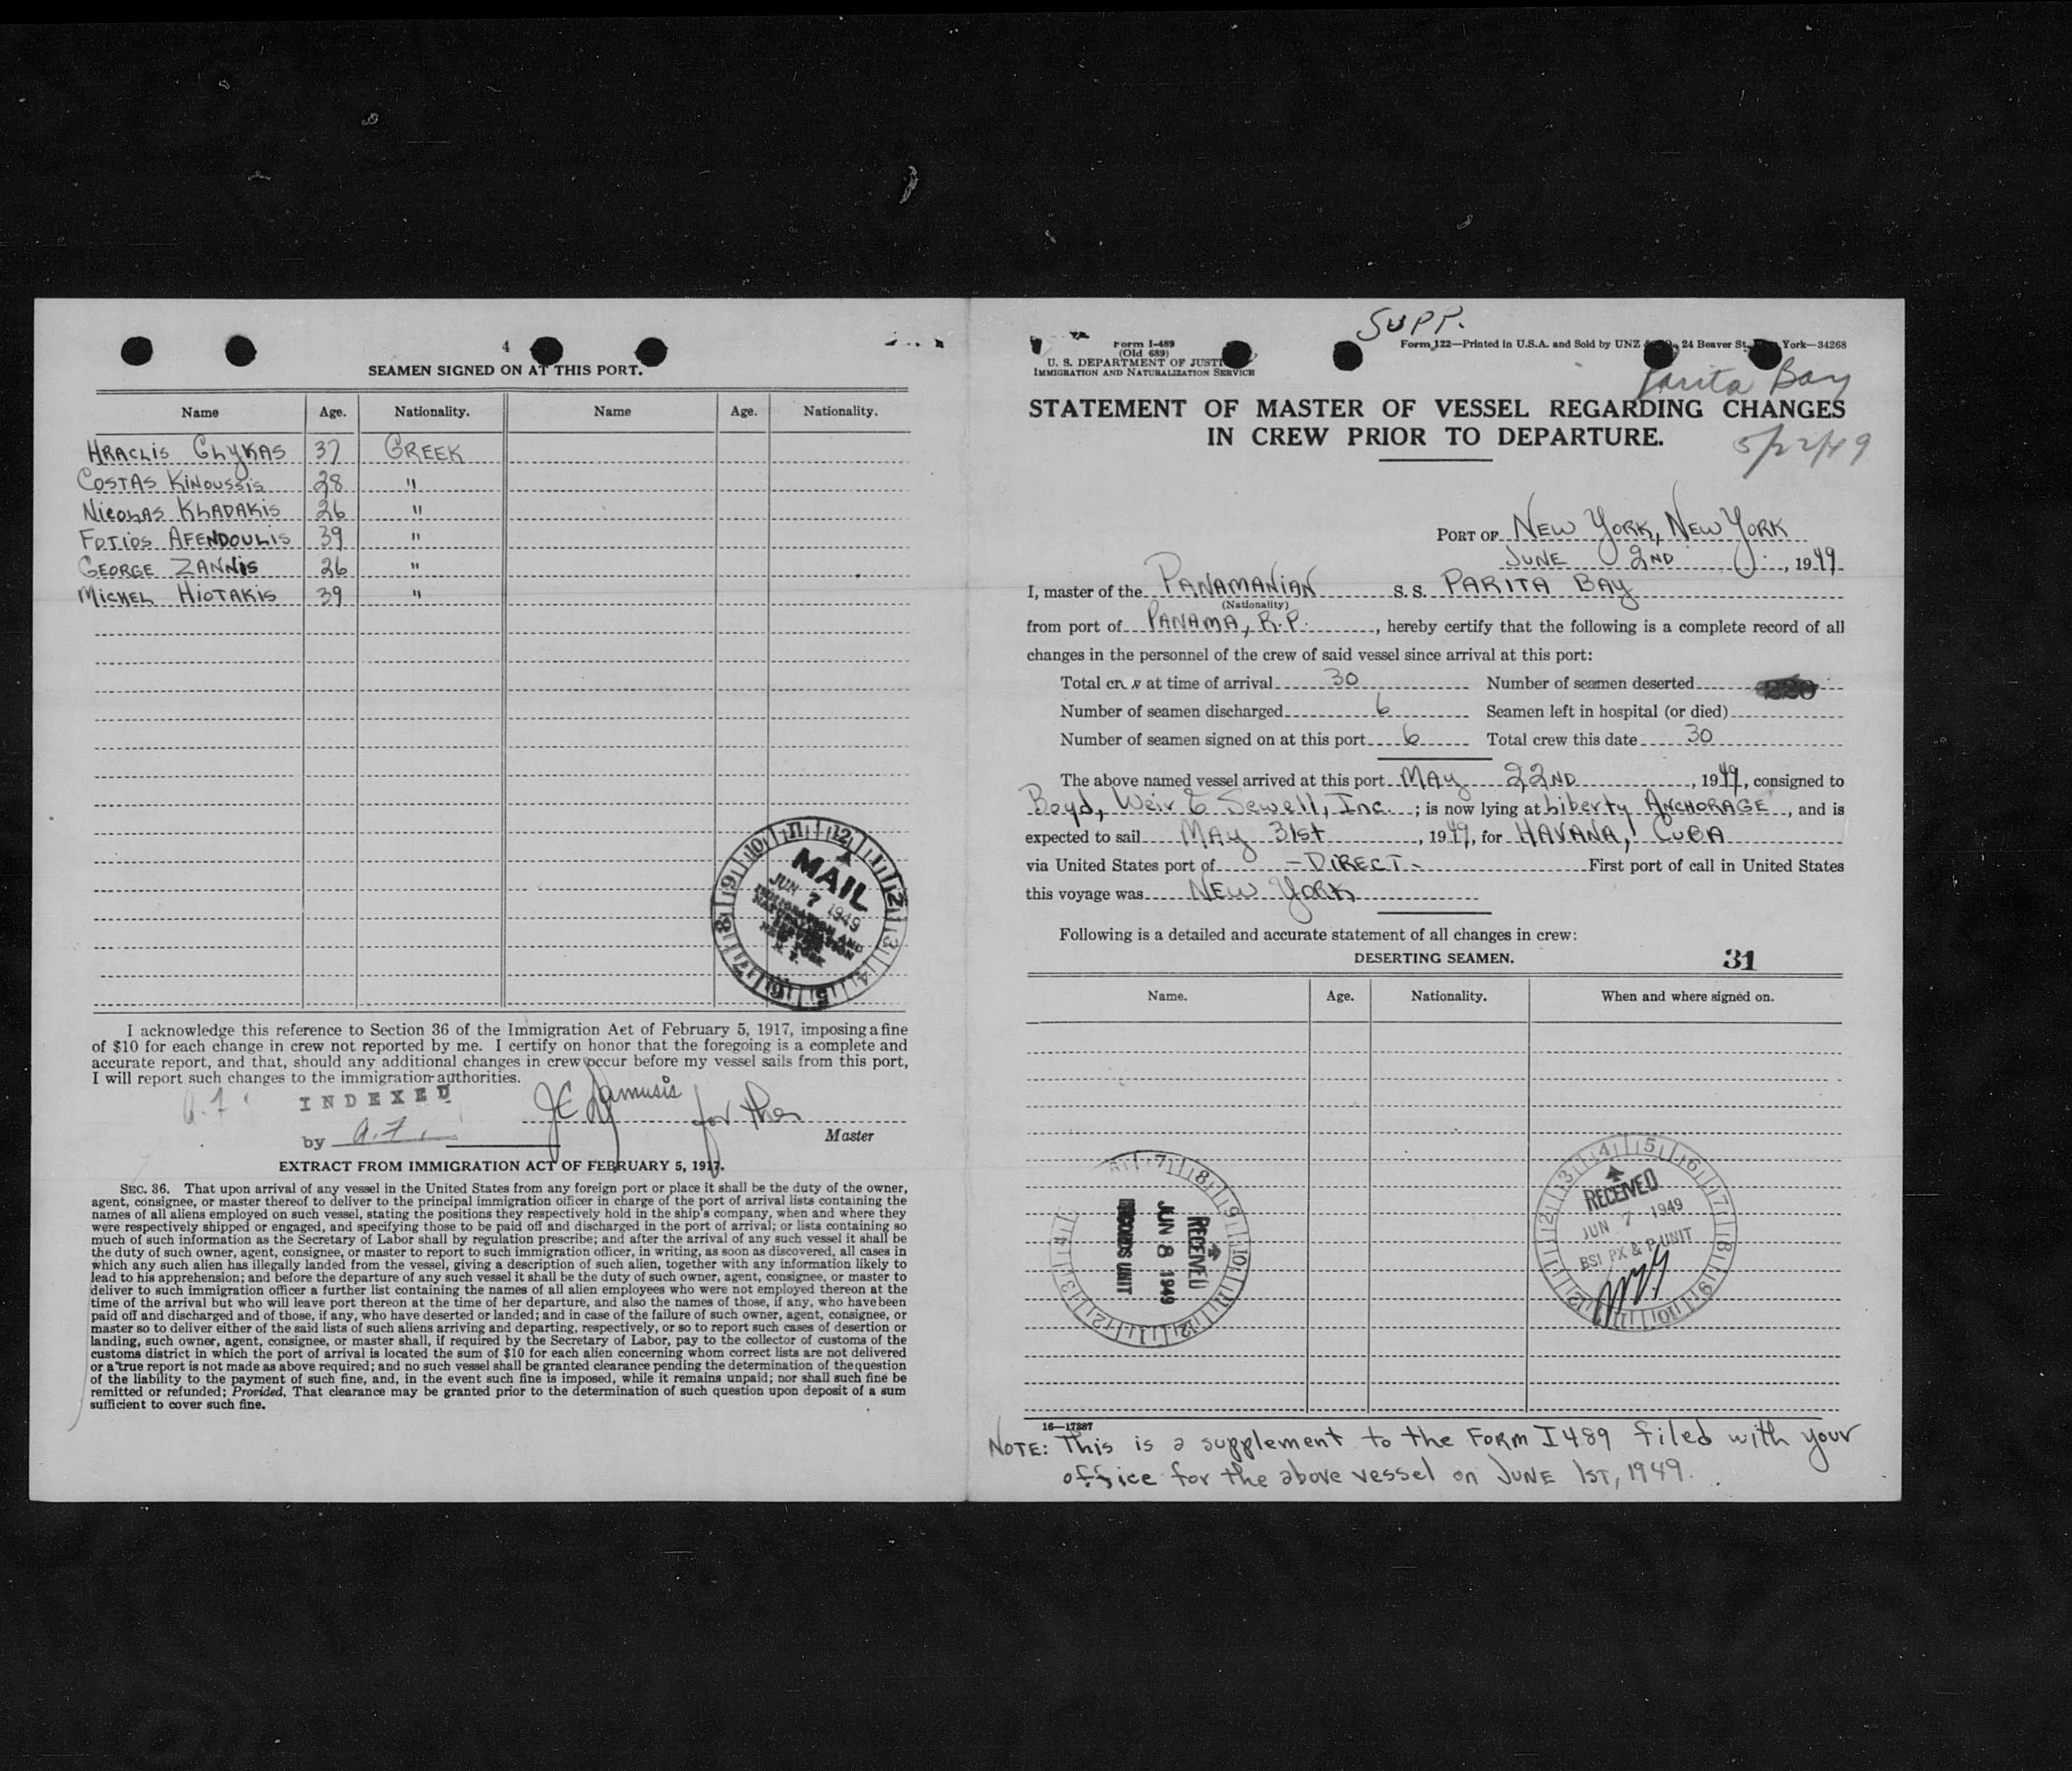 4
SEAMEN SIGNED ON AT THIS PORT.
Name Age. Nationality. Name Age. Nationality.
HRACLIS GLYKAS 37 GREEK
COSTAS KINOUSSIS 28 "
NICOLAS KLADAKIS 26 "
FOTIOS AFENDOULIS 39 "
GEORGE ZANNIS 26 "
MICHEL HIOTAKIS 39 "
MAIL
JUN 7 1949
IMMIGRATION AND
NATURALIZATION
NEW YORK
N. Y.
I acknowledge this reference to Section 36 of the Immigration Act of February 5, 1917, imposing a fine
of $10 for each change in crew not reported by me. I certify on honor that the foregoing is a complete and
accurate report, and that, should any additional changes in crew occur before my vessel sails from this port,
I will report such changes to the immigration authorities.
INDEXED
by a.f.
for the
Master
EXTRACT FROM IMMIGRATION ACT OF FEBRUARY 5, 1917.
SEC. 36. That upon arrival of any vessel in the United States from any foreign port or place it shall be the duty of the owner,
agent, consignee, or master thereof to deliver to the principal immigration officer in charge of the port of arrival lists containing the
names of all aliens employed on such vessel, stating the positions they respectively hold in the ship's company, when and where they
were respectively shipped or engaged, and specifying those to be paid off and discharged in the port of arrival; or lists containing so
much of such information as the Secretary of Labor shall by regulation prescribe; and after the arrival of any such vessel it shall be
the duty of such owner, agent, consignee, or master to report to such immigration officer, in writing, as soon as discovered, all cases in
which any such alien has illegally landed from the vessel, giving a description of such alien, together with any information likely to
lead to his apprehension; and before the departure of any such vessel it shall be the duty of such owner, agent, consignee, or master to
deliver to such immigration officer a further list containing the names of all alien employees who were not employed thereon at the
time of the arrival but who will leave port thereon at the time of her departure, and also the names of those, if any, who have been
paid off and discharged and of those, if any, who have deserted or landed; and in case of the failure of such owner, agent, consignee, or
master so to deliver either of the said lists of such aliens arriving and departing, respectively, or so to report such cases of desertion or
landing, such owner, agent, consignee, or master shall, if required by the Secretary of Labor, pay to the collector of customs of the
customs district in which the port of arrival is located the sum of $10 for each alien concerning whom correct lists are not delivered
or a true report is not made as above required; and no such vessel shall be granted clearance pending the determination of the question
of the liability to the payment of such fine, and, in the event such fine is imposed, while it remains unpaid; nor shall such fine be
remitted or refunded; Provided, That clearance may be granted prior to the determination of such question upon deposit of a sum
sufficient to cover such fine.
SUPP.
Form I-489
(Old 689)
U. S. DEPARTMENT OF JUSTI
IMMIGRATION AND NATURALIZATION SERVICE
Form 122—Printed in U.S.A. and Sold by UNZ 24 Beaver St. York—34268
Parita Bay
STATEMENT OF MASTER OF VESSEL REGARDING CHANGES
IN CREW PRIOR TO DEPARTURE.
5/22/49
PORT OF NEW YORK, NEW YORK
JUNE 2ND, 1949
I, master of the PANAMANIAN S. S. PARITA BAY
(Nationality)
from port of PANAMA, R.P., hereby certify that the following is a complete record of all
changes in the personnel of the crew of said vessel since arrival at this port:
Total crew at time of arrival 30 Number of seamen deserted
Number of seamen discharged 6 Seamen left in hospital (or died)
Number of seamen signed on at this port 6 Total crew this date 30
The above named vessel arrived at this port MAY 22ND, 1949, consigned to
Boyd, Weir & Sewell, Inc.; is now lying at Liberty ANCHORAGE, and is
expected to sail MAY 31st, 1949, for HAVANA, CUBA
via United States port of -DIRECT- First port of call in United States
this voyage was NEW YORK
Following is a detailed and accurate statement of all changes in crew:
DESERTING SEAMEN. 31
Name. Age. Nationality. When and where signed on.
RECEIVED
JUN 8 1949
RECORDS UNIT
RECEIVED
JUN 7 1949
BSI PX & P UNIT
16—17387
NOTE: This is a supplement to the FORM I489 filed with your
office for the above vessel on JUNE 1ST, 1949.